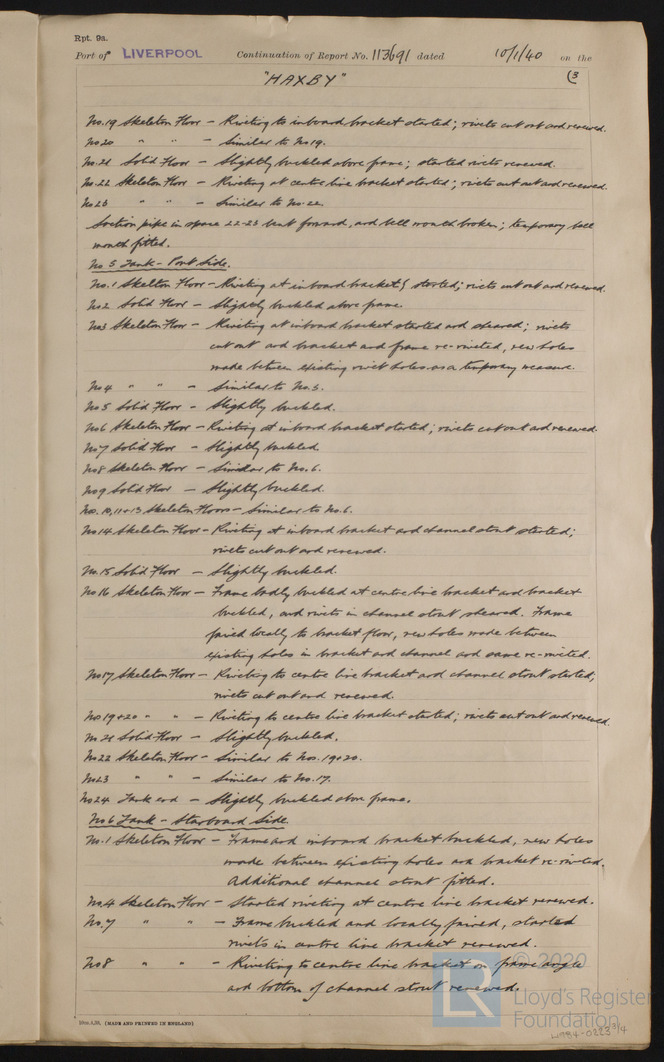 Rpt. 9a.
Port of LIVERPOOL Continuation of Report No. 113691 dated 10/1/40 on the
"HAXBY" (3
No. 19 Skeleton Floor - Riveting to inboard bracket started; rivets cut out and renewed.
No 20 " " - Similar to No 19.
No. 21 Solid Floor - Slightly buckled above frame; started rivets renewed.
No. 22 Skeleton Floor - Riveting at centre line bracket started; rivets cut out and renewed.
No 23 " " - Similar to No. 22
Suction pipe in space 22-23 bent forward, and bell mouth broken; temporary bell
mouth fitted.
No 5 Tank - Port Side.
No. 1 Skelton Floor - Riveting at inboard bracket started; rivets cut out and renewed.
No 2 Solid Floor - Slightly buckled above frame
No 3 Skeleton Floor - Riveting at inboard bracket started and sheared; rivets
cut out and bracket and frame re-riveted, new holes
made between existing rivet holes as a temporary measure.
No 4 " " - Similar to No. 3.
No 5 Solid Floor - Slightly buckled.
No 6 Skeleton Floor - Riveting at inboard bracket started; rivets cut out and renewed.
No 7 Solid Floor - Slightly buckled
No 8 Skeleton Floor - Similar to No. 6.
No 9 Solid Floor - Slightly buckled.
No. 10, 11 + 13 Skeleton Floors - Similar to No. 6.
No 14 Skeleton Floor - Riveting at inboard bracket and channel strut started;
rivets cut out and renewed.
No. 15 Solid Floor - Slightly buckled.
No 16 Skeleton Floor - Frame badly buckled at centre line bracket and bracket
buckled, and rivets in channel strut sheared. Frame
faired locally to bracket floor, new holes made between
existing holes in bracket and channel and same re-riveted.
No 17 Skeleton Floor - Riveting to centre line bracket and channel strut started;
rivets cut out and renewed.
No 19 + 20 " " - Riveting to centre line bracket started; rivets cut out and renewed.
No 21 Solid Floor - Slightly buckled.
No 22 Skeleton Floor - Similar to Nos. 19 + 20.
No 23 " " - Similar to No. 17.
No 24 Tank end - Slightly buckled above frame.
No 6 Tank - Starboard Side
No. 1 Skeleton Floor - Frame and inboard bracket buckled, new holes
made between existing holes and bracket re-riveted.
Additional channel strut fitted.
No. 4 Skeleton Floor - Started riveting at centre line bracket renewed.
No. 7 " " - Frame buckled and locally faired, started
rivets in centre line bracket renewed.
No 8 " " - Riveting to centre line bracket on frame angle
and bottom of channel strut renewed.
(MADE AND PRINTED IN ENGLAND)
© 2020
LR
Lloyd's Register
Foundation
W984-0223 3/4